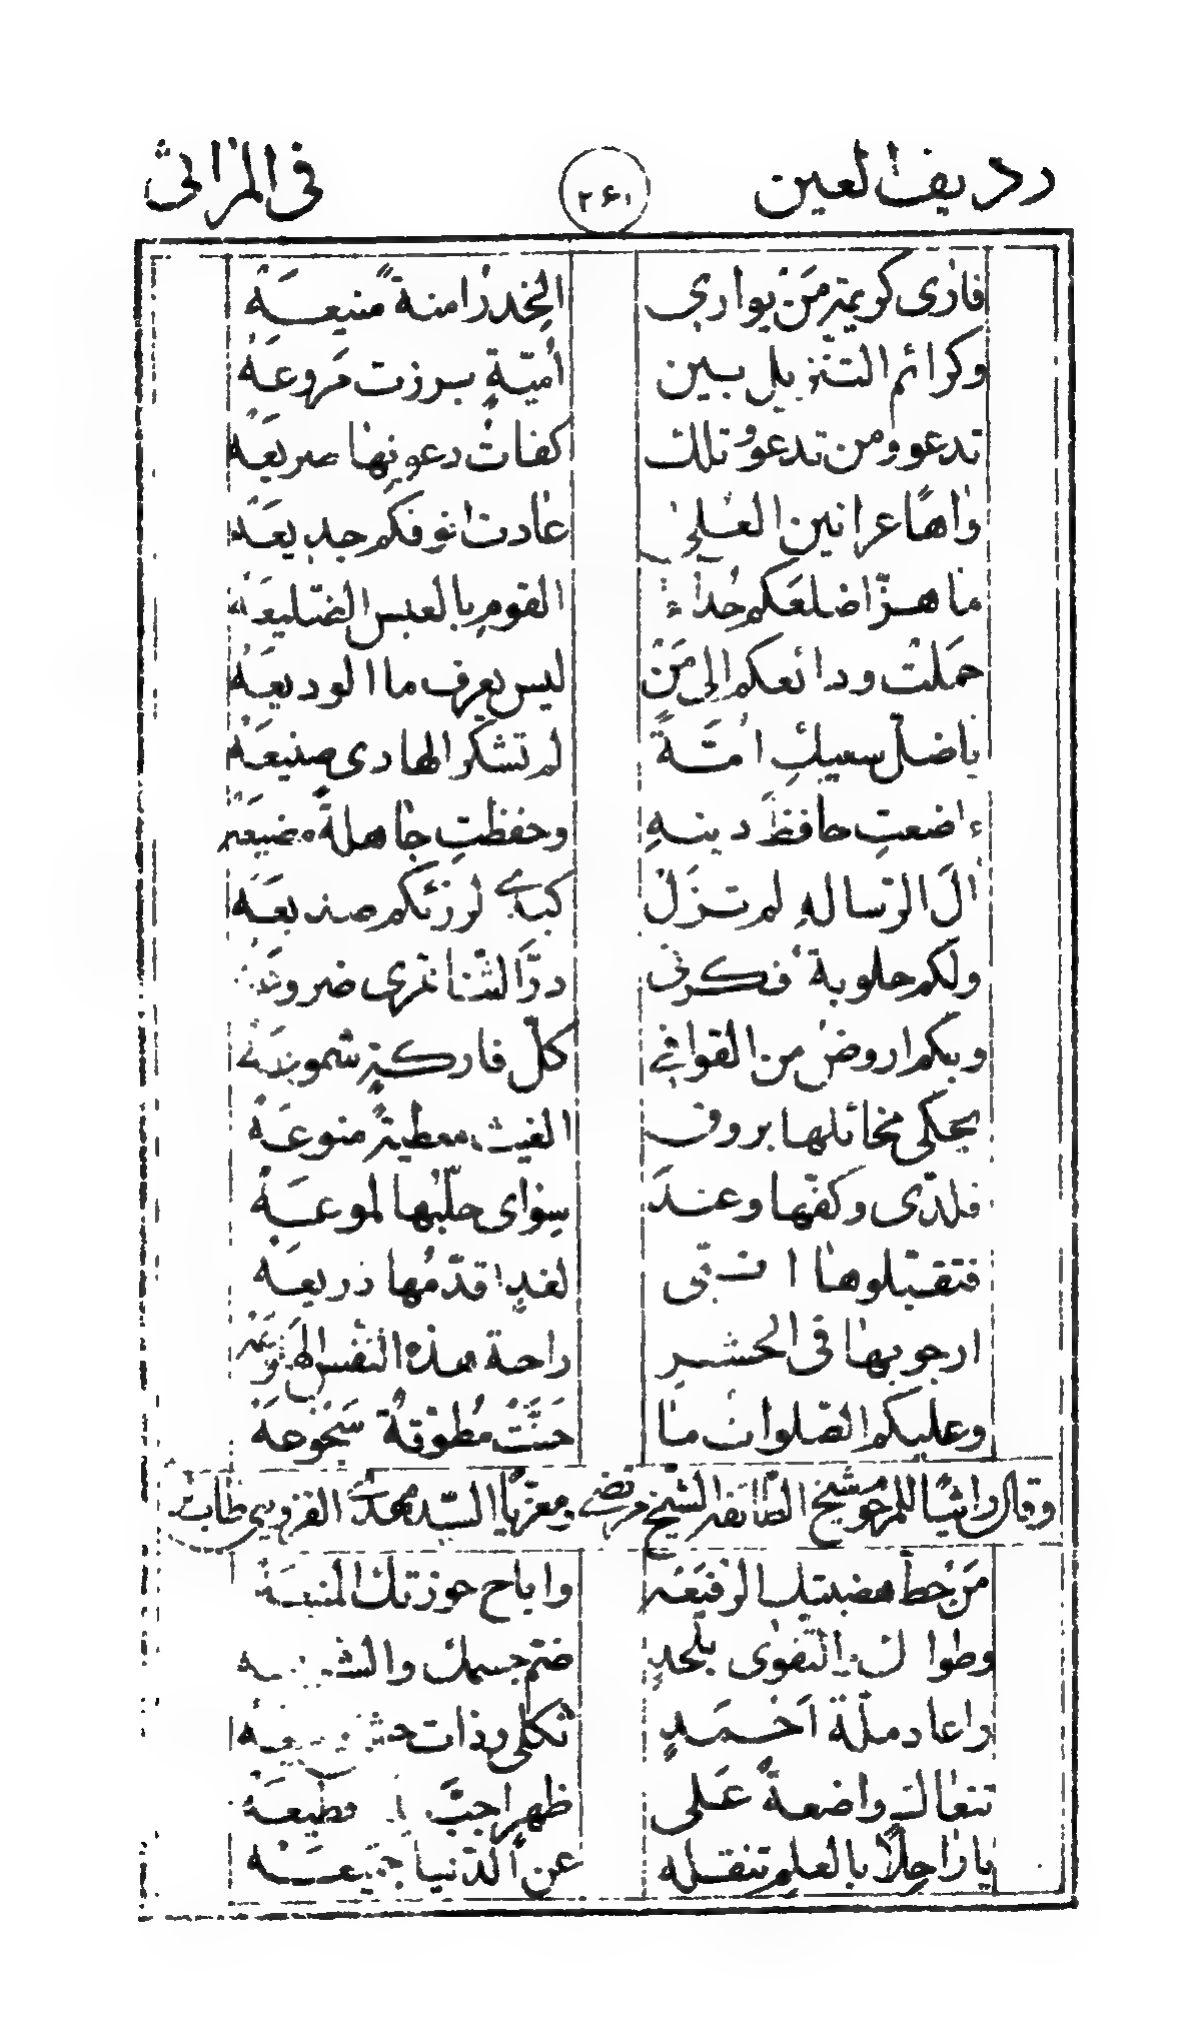 ردیف العین ۲۶۱ فی المراثی
فارى كريمة من يواري الخدر امنة منيعه
وكرائم التنزيل بين أمية برزت مروعه
تدعو ومن تدعو وتلك كفات دعوتها صريعه
واها عرانين العلى عادت انوفكم جديعه
ما هزّ اضلعكم حداء القوم بالعيس الضليعه
حملت ودائعكم الى من ليس يعرف ما الوديعه
يا ضلّ سعيك امّة لم تشكر الهادى صنيعه
ءاضعت حافظ دينه وحفظت جاهلة مضيعه
آل الرسالة لم تزل كبدى لرزئكم صديعه
ولكم حلوبة فكرتى درّ الثنا تمرى ضروعه
وبكم اروض من القوافي كلّ فاركة شموعه
يحكى مخائلها بروق الغيث معطية منوعه
فلدىّ وكفّها وعند سواى خلّبها لموعه
فتقبّلوها انّنى لغد اقدّمها ذريعه
ارجو بها فى الحشر راحة هذه النفس الهلوعه
وعليكم الصلوات ما حنّت مطوّقة سجوعه
وقال راثيًا للمرحوم شيخ الطائفة الشيخ مرتضى ومعزيًا السيّد مهدى القزويني طاب ثراه
من حطّ هضبتك الرفيعه واباح حوزتك المنيعه
وطوا التقوى بلحد ضمّ جسمك والشريعه
واعاد ملّة احمد ثكلى وذات
تنعاك واضعة على ظهر اجبّ قطيعه
يا راحلًا بالعلم تنقله عن الدّنيا جميعه